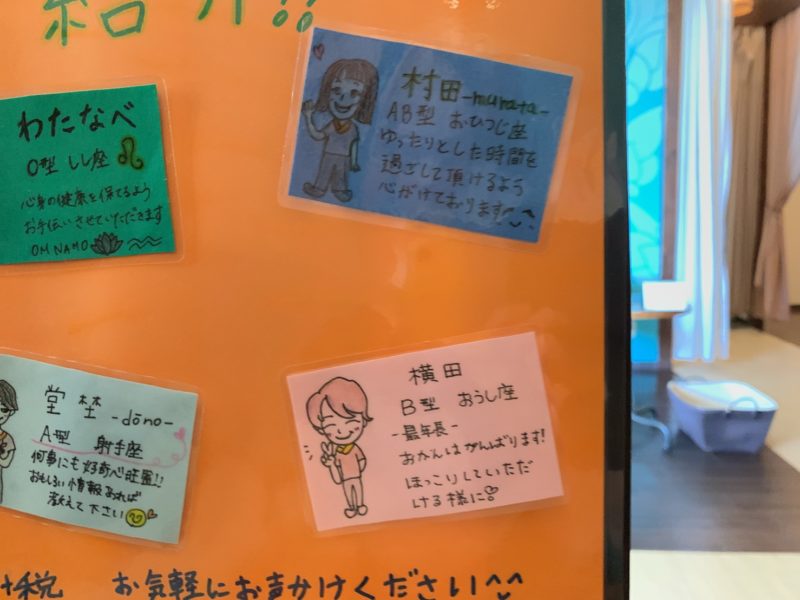 紹介!!
わたなべ
O型 しし座♌
心身の健康を保てるよう
お手伝いさせていただきます
OM NAMO
村田-murata-
AB型 おひつじ座
ゆったりとした時間を
過ごして頂けるよう
心がけております^^
堂埜-dōno-
A型 射手座
何事にも好奇心旺盛!!
おもしろい情報あれば
教えて下さい
横田
B型 おうし座
-最年長-
おかんはがんばります!
ほっこりしていただ
ける様に
税 お気軽にお声かけください^^